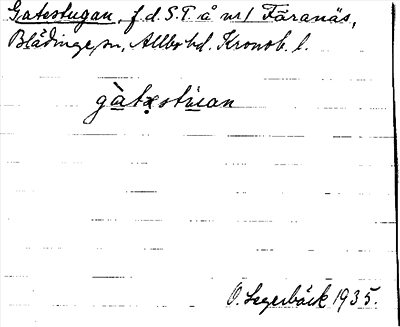 Gatestugan, f.d. S.T. å nr 1 Färanäs,
Blädinge sn, Allbo hd. Kronob. l.
gàtxstu̇an
O. Segerbäck 1935.